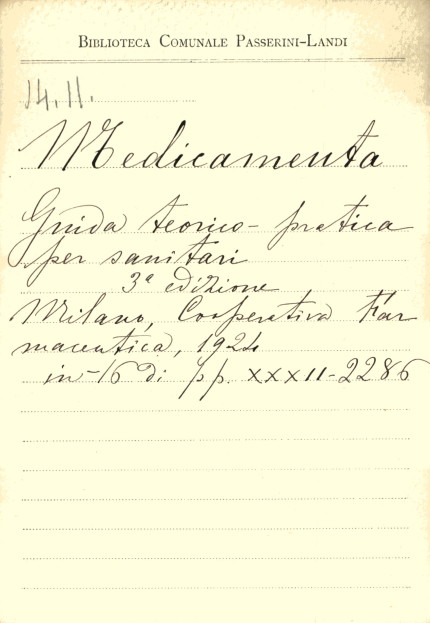 BIBLIOTECA COMUNALE PASSERINI-LANDI
14.11.
Medicamenta
Guida teorico-pratica
per sanitari
3ª edizione
Milano, Cooperativa Far
maceutica, 1924
in-16 di pp. XXXII-2286